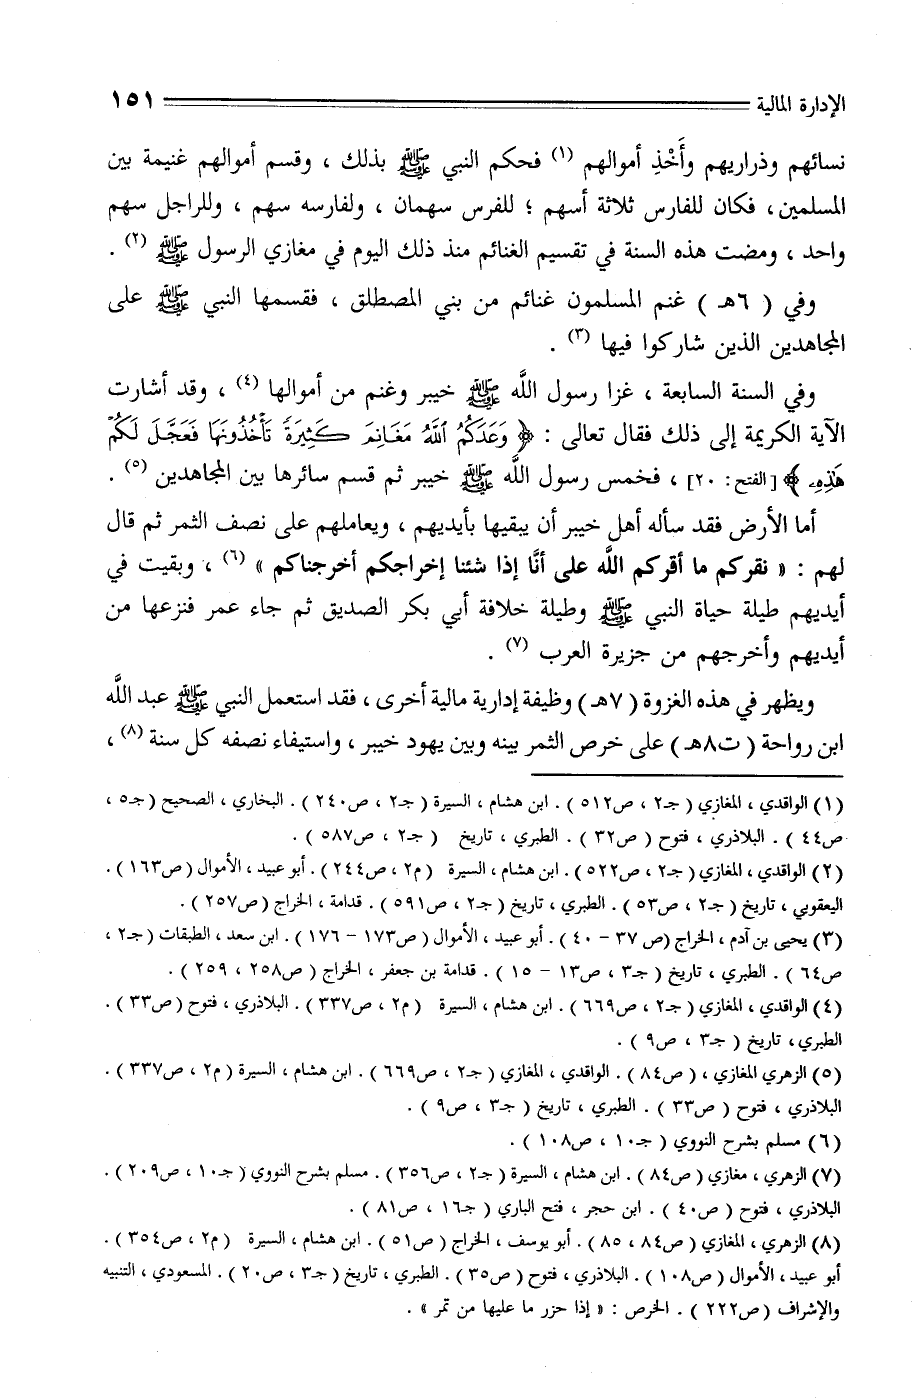 الإدارة المالية ١٥١
نسائهم وذراريهم وأَخْذِ أموالهم (١) فحكم النبي ﷺ بذلك ، وقسم أموالهم غنيمة بين
المسلمين، فكان للفارس ثلاثة أسهم ؛ للفرس سهمان ، ولفارسه سهم ، وللراجل سهم
واحد ، ومضت هذه السنة في تقسيم الغنائم منذ ذلك اليوم في مغازي الرسول ﷺ (٢) .
وفي ( ٦هـ ) غنم المسلمون غنائم من بني المصطلق ، فقسمها النبي ﷺ على
المجاهدين الذين شاركوا فيها (٣) .
وفي السنة السابعة ، غزا رسول اللَّه ﷺ خيبر وغنم من أموالها (٤) ، وقد أشارت
الآية الكريمة إلى ذلك فقال تعالى : ﴿ وَعَدَكُمُ ٱللَّهُ مَغَانِمَ كَثِيرَةً تَأْخُذُونَهَا فَعَجَّلَ لَكُمْ
هَٰذِهِۦ ﴾ [الفتح: ٢٠] ، فخمس رسول اللَّه ﷺ خيبر ثم قسم سائرها بين المجاهدين (٥) .
أما الأرض فقد سأله أهل خيبر أن يبقيها بأيديهم ، ويعاملهم على نصف الثمر ثم قال
لهم : « نقركم ما أقركم اللَّه على أنَّا إذا شئنا إخراجكم أخرجناكم » (٦) ، وبقيت في
أيديهم طيلة حياة النبي ﷺ وطيلة خلافة أبي بكر الصديق ثم جاء عمر فنزعها من
أيديهم وأخرجهم من جزيرة العرب (٧) .
ويظهر في هذه الغزوة ( ٧هـ ) وظيفة إدارية مالية أخرى ، فقد استعمل النبي ﷺ عبد اللَّه
ابن رواحة ( ت٨هـ ) على خرص الثمر بينه وبين يهود خيبر ، واستيفاء نصفه كل سنة (٨) ،
(١) الواقدي ، المغازي ( جـ٢ ، ص٥١٢ ) . ابن هشام ، السيرة ( جـ٢ ، ص٢٤٠ ) . البخاري ، الصحيح ( جـ٥ ،
ص٤٤ ) . البلاذري ، فتوح ( ص٣٢ ) . الطبري ، تاريخ ( جـ٢ ، ص٥٨٧ ) .
(٢) الواقدي ، المغازي ( جـ٢ ، ص٥٢٢ ) . ابن هشام ، السيرة ( م٢ ، ص٢٤٤ ) . أبو عبيد ، الأموال ( ص١٦٣ ) .
اليعقوبي ، تاريخ ( جـ٢ ، ص٥٣ ) . الطبري ، تاريخ ( جـ٢ ، ص٥٩١ ) . قدامة ، الخراج ( ص٢٥٧ ) .
(٣) يحيى بن آدم ، الخراج (ص ٣٧ - ٤٠ ) . أبو عبيد ، الأموال ( ص١٧٣ - ١٧٦ ) . ابن سعد ، الطبقات ( جـ٢ ،
ص٦٤ ) . الطبري ، تاريخ ( جـ٣ ، ص١٣ - ١٥ ) . قدامة بن جعفر ، الخراج ( ص٢٥٨ ، ٢٥٩ ) .
(٤) الواقدي ، المغازي ( جـ٢ ، ص٦٦٩ ) . ابن هشام ، السيرة ( م٢ ، ص٣٣٧ ) . البلاذري ، فتوح ( ص٣٣ ) .
الطبري ، تاريخ ( جـ٣ ، ص٩ ) .
(٥) الزهري المغازي ، ( ص٨٤ ) . الواقدي ، المغازي ( جـ٢ ، ص٦٦٩ ) . ابن هشام ، السيرة ( م٢ ، ص٣٣٧ ) .
البلاذري ، فتوح ( ص٣٣ ) . الطبري ، تاريخ ( جـ٣ ، ص٩ ) .
(٦) مسلم بشرح النووي ( جـ١٠ ، ص١٠٨ ) .
(٧) الزهري ، مغازي ( ص٨٤ ) . ابن هشام ، السيرة ( جـ٢ ، ص٣٥٦ ) . مسلم بشرح النووي ( جـ١٠ ، ص٢٠٩ ) .
البلاذري ، فتوح ( ص٤٠ ) . ابن حجر ، فتح الباري ( جـ١٦ ، ص٨١ ) .
(٨) الزهري ، المغازي ( ص٨٤ ، ٨٥ ) . أبو يوسف ، الخراج ( ص٥١ ) . ابن هشام ، السيرة ( م٢ ، ص٣٥٤ ) .
أبو عبيد ، الأموال ( ص١٠٨ ) . البلاذري ، فتوح ( ص٣٥ ) . الطبري ، تاريخ ( جـ٣ ، ص٢٠ ) . المسعودي ، التنبيه
والإشراف ( ص٢٢٢ ) . الخرص : « إذا حزر ما عليها من تمر » .